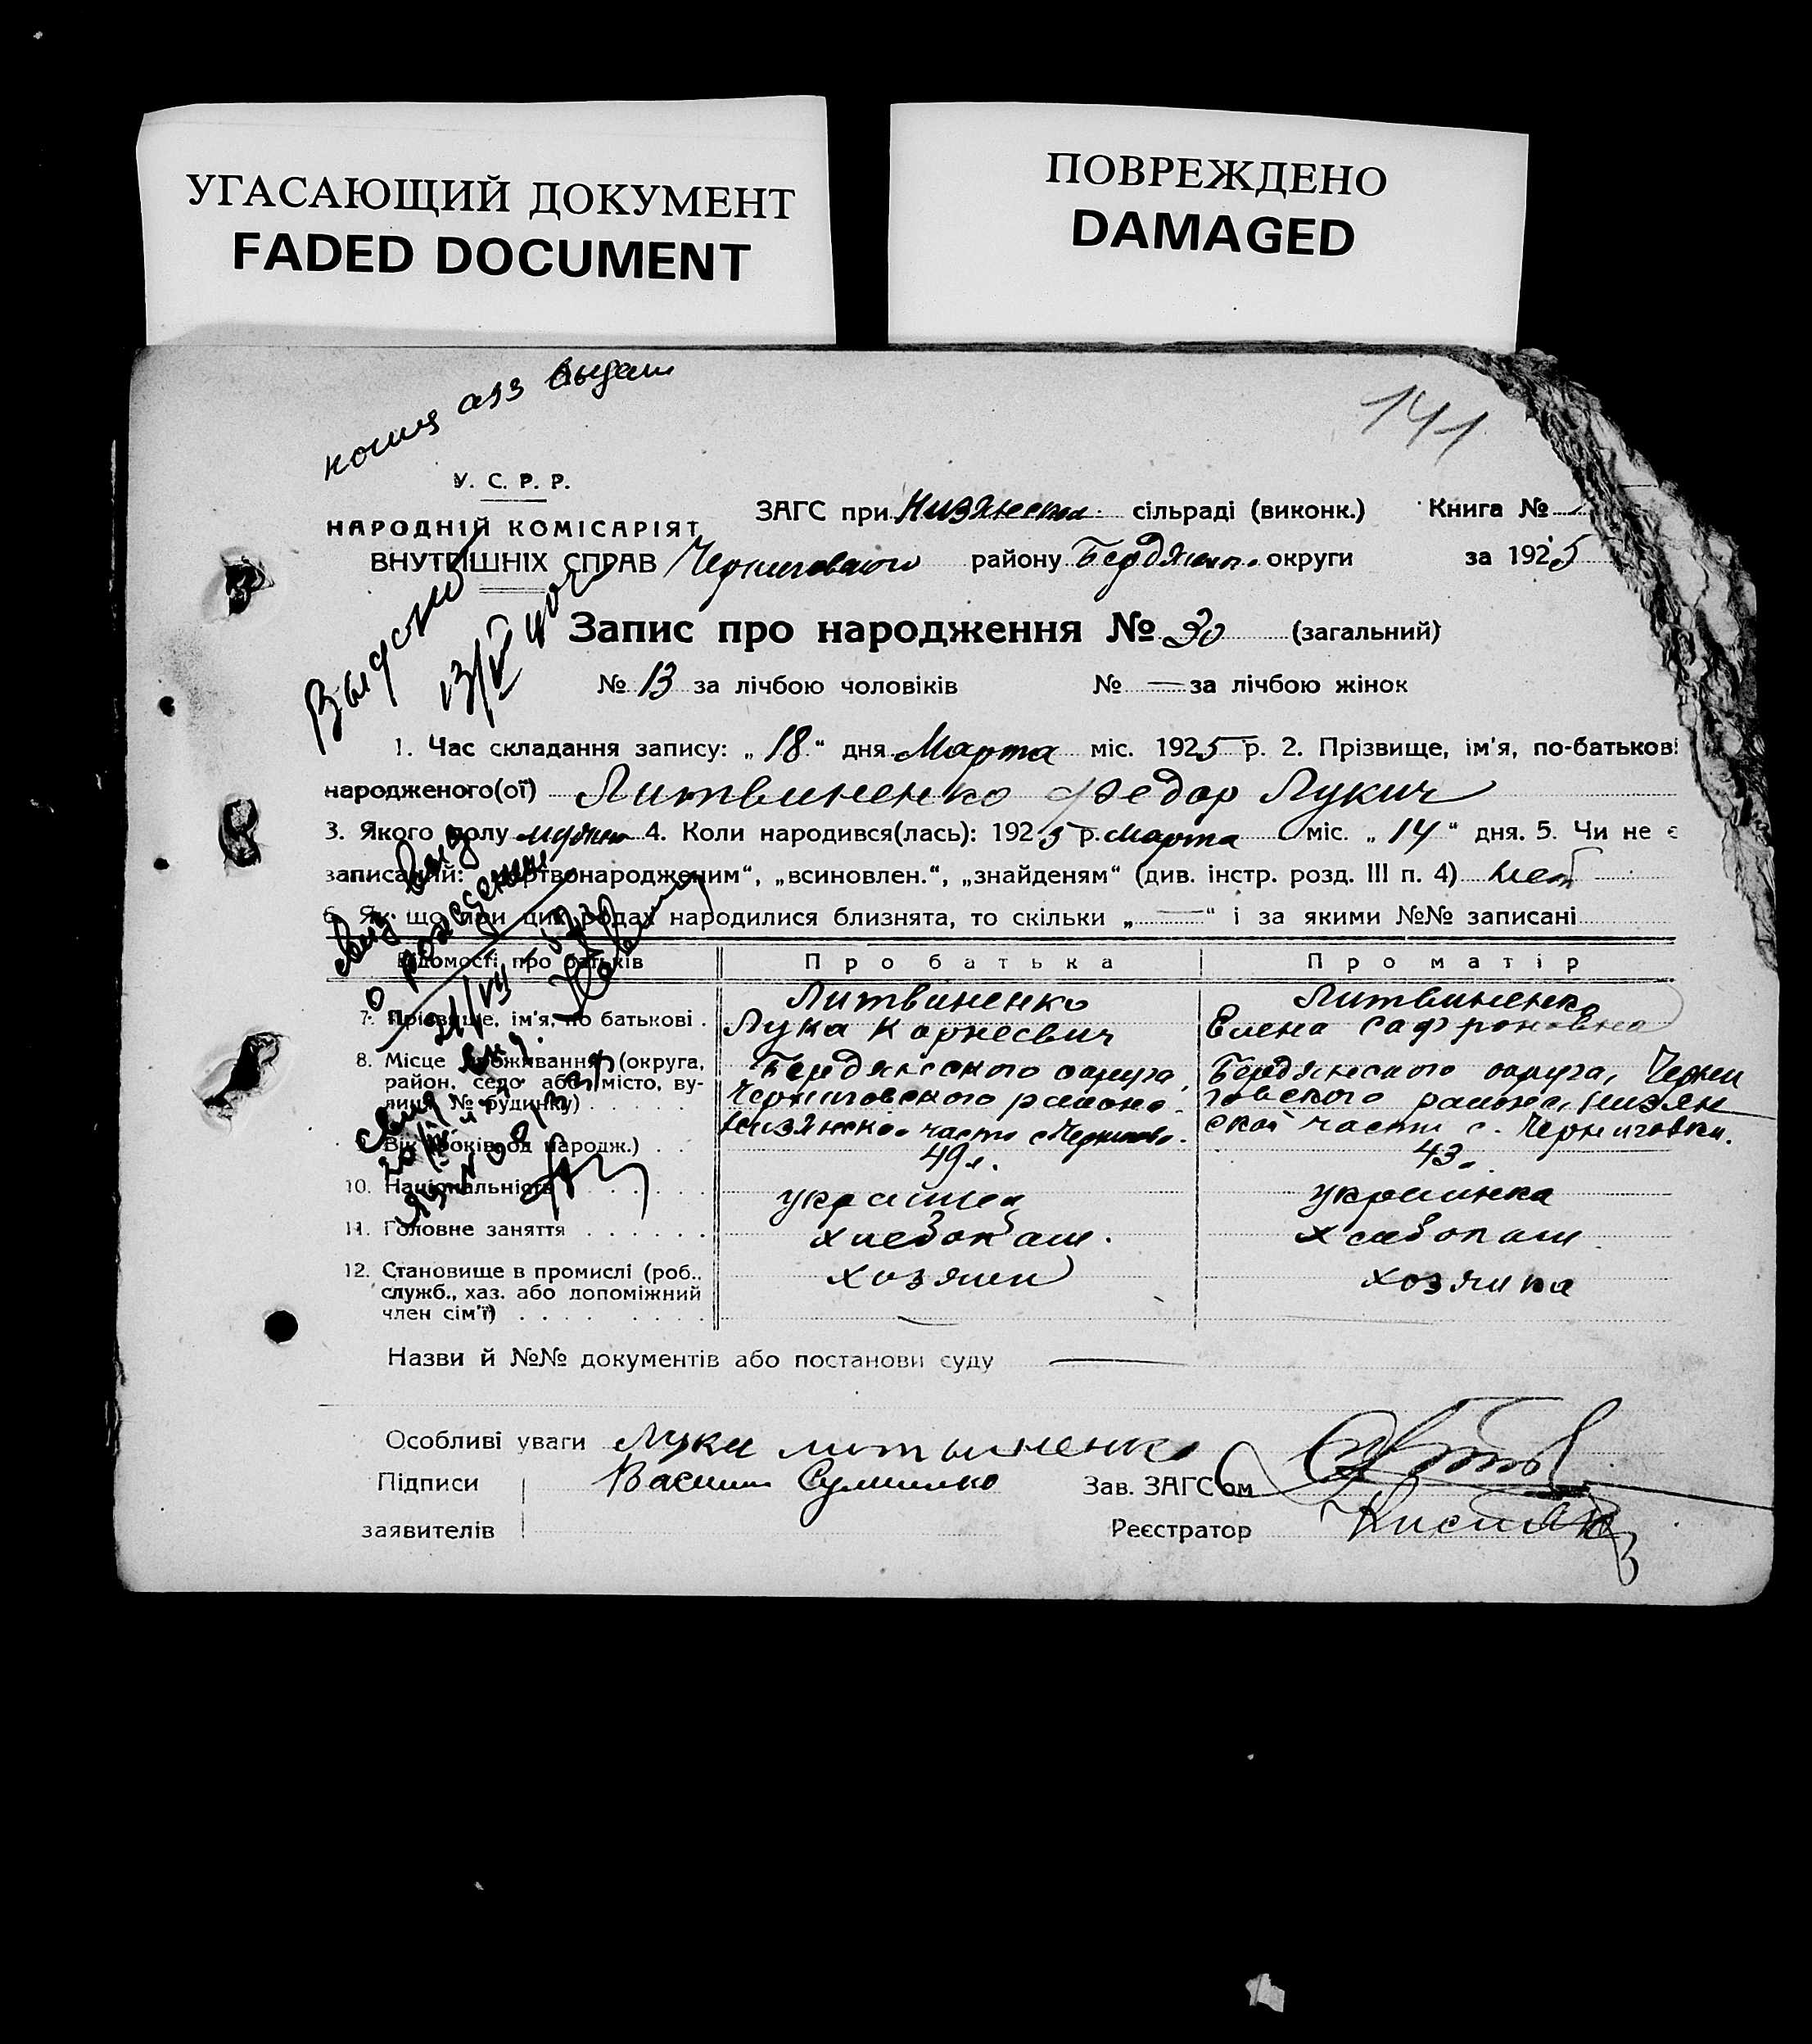 УГАСАЮЩИЙ ДОКУМЕНТ
FADED DOCUMENT
ПОВРЕЖДЕНО
DAMAGED
копия азз выдан
141
У. С. Р. Р.
НАРОДНІЙ КОМІСАРІЯТ
ВНУТРІШНІХ СПРАВ
ЗАГС при Низянском сільраді (виконк.) Книга №
Черниговского району Бердянск. округи за 1925
Запис про народження № 30 (загальний)
№ 13 за лічбою чоловіків № — за лічбою жінок
1. Час складання запису: „18“ дня Марта міс. 1925 р. 2. Прізвище, ім'я, по-батькові
народженого(ої) Литвиненко Федор Лукич
3. Якого полу мужск 4. Коли народився(лась): 1925 р. марта міс. „14“ дня. 5. Чи не є
записаний: „мертвонародженим“, „всиновлен.“, „знайденям“ (див. інстр. розд. III п. 4) нет
6. Як що при цих родах народилися близнята, то скільки „—“ і за якими №№ записані
Відомості про батьків Про батька Про матір
7. Прізвище, ім'я, по батькові . Литвиненко Лука Корнеевич Литвиненко Елена Сафроновна
8. Місце проживання (округа, район, село або місто, вулиця, № будинку) Бердянского округа, Черниговского района Низянской части с Чернигов. Бердянского округа, Черниговского района, Низянской части с. Черниговки.
9. Вік (років од народж.) . . 49 л. 43 л.
10. Національність украинец украинка
11. Головне заняття хлебопаш. хлебопаш
12. Становище в промислі (роб., служб., хаз. або допоміжний член сім'ї) хозяин хозяика
Назви й №№ документів або постанови суду —
Особливі уваги Лука литвиненко
Підписи Василий Зав. ЗАГС'ом
заявителів Реєстратор